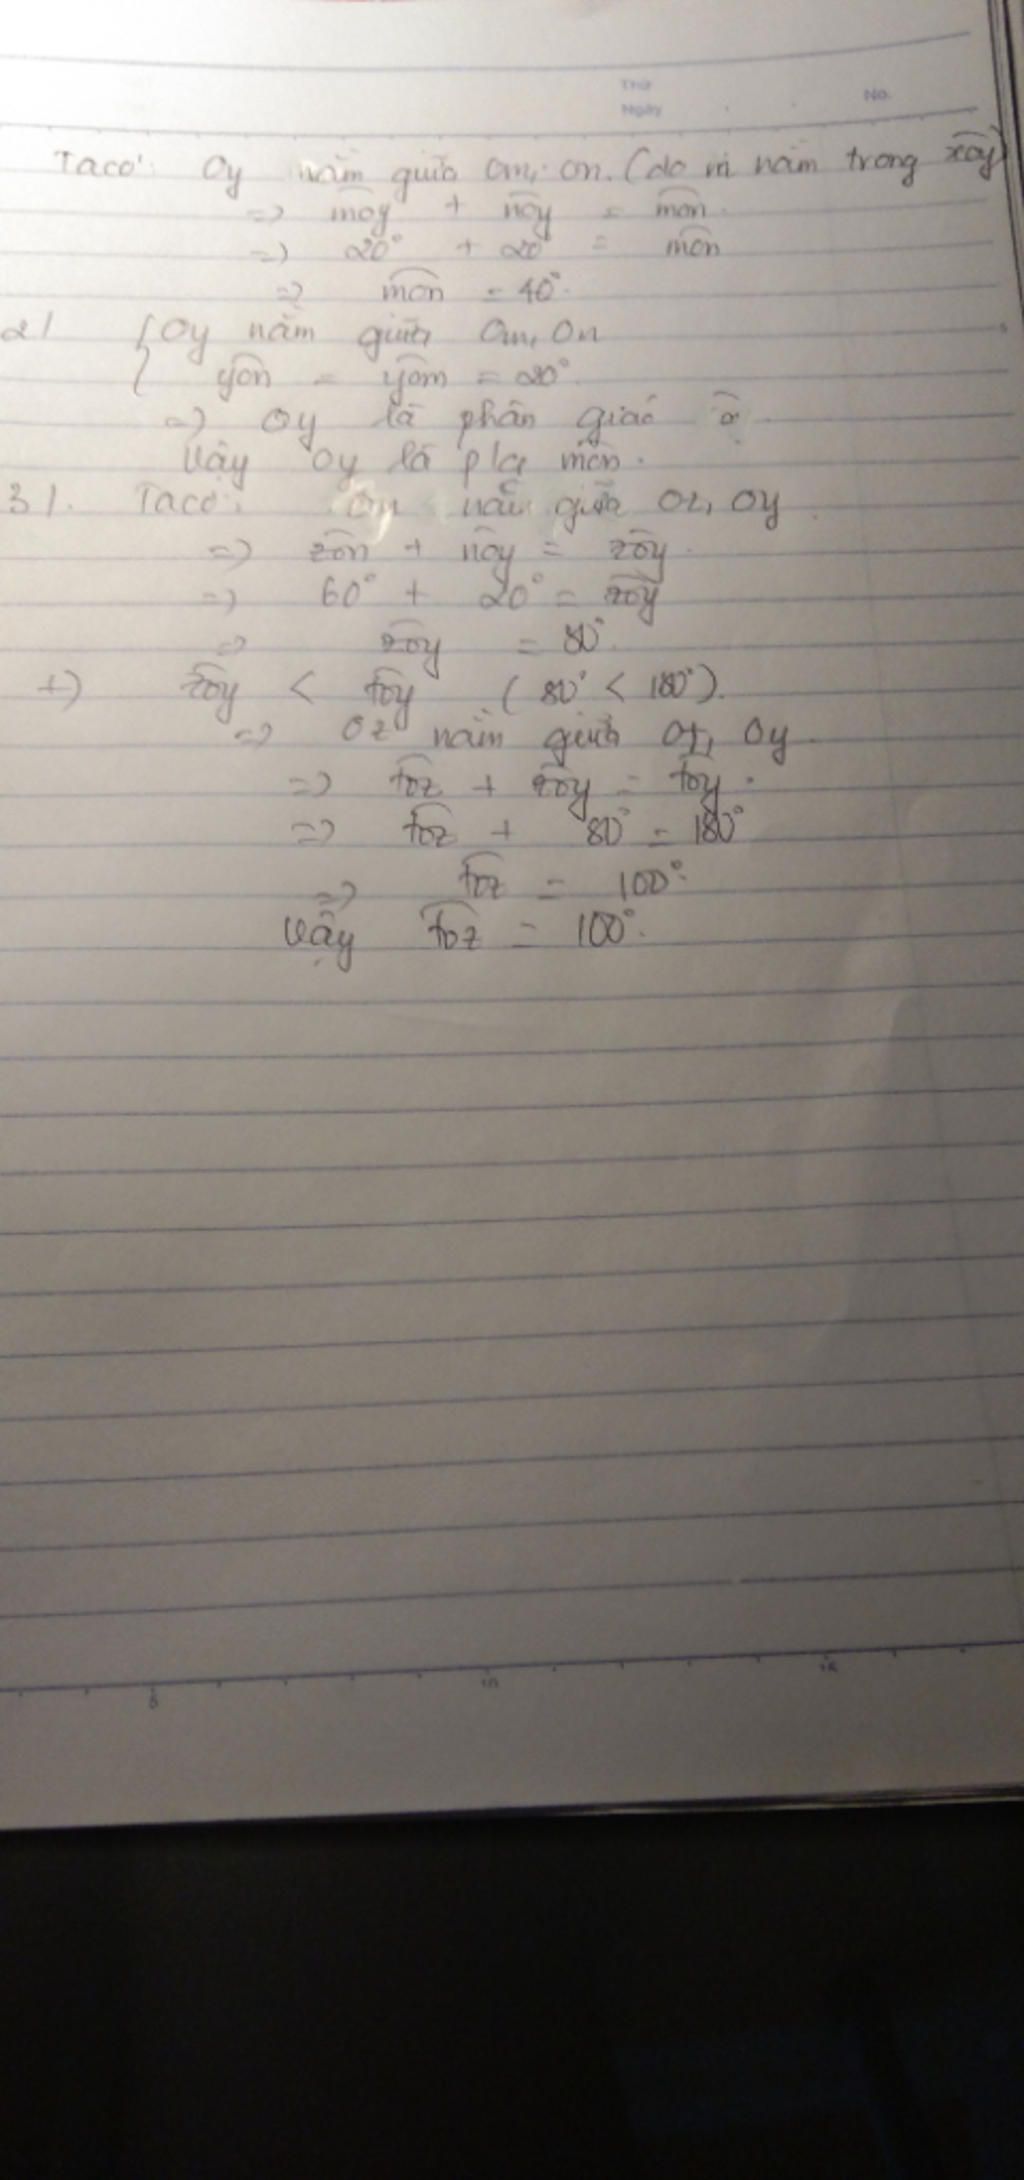 Thứ
Ngày No.
Ta có: Oy nằm giữa Om, On. (do m nằm trong xôy)
=> môy + nôy = môn.
=> 20° + 20° = môn
=> môn = 40°.
2/ { Oy nằm giữa Om, On
yôn = yôm = 20°.
=> Oy là phân giác
Vậy Oy là p/g môn.
3/. Ta có: On nằm giữa Oz, Oy.
=> zôn + nôy = zôy.
=> 60° + 20° = zôy
=> zôy = 80°.
+) zôy < tôy (80° < 180°).
=> Oz nằm giữa Ot, Oy.
=> tôz + zôy = tôy.
=> tôz + 80° = 180°
=> tôz = 100°.
Vậy tôz = 100°.
5 10 15